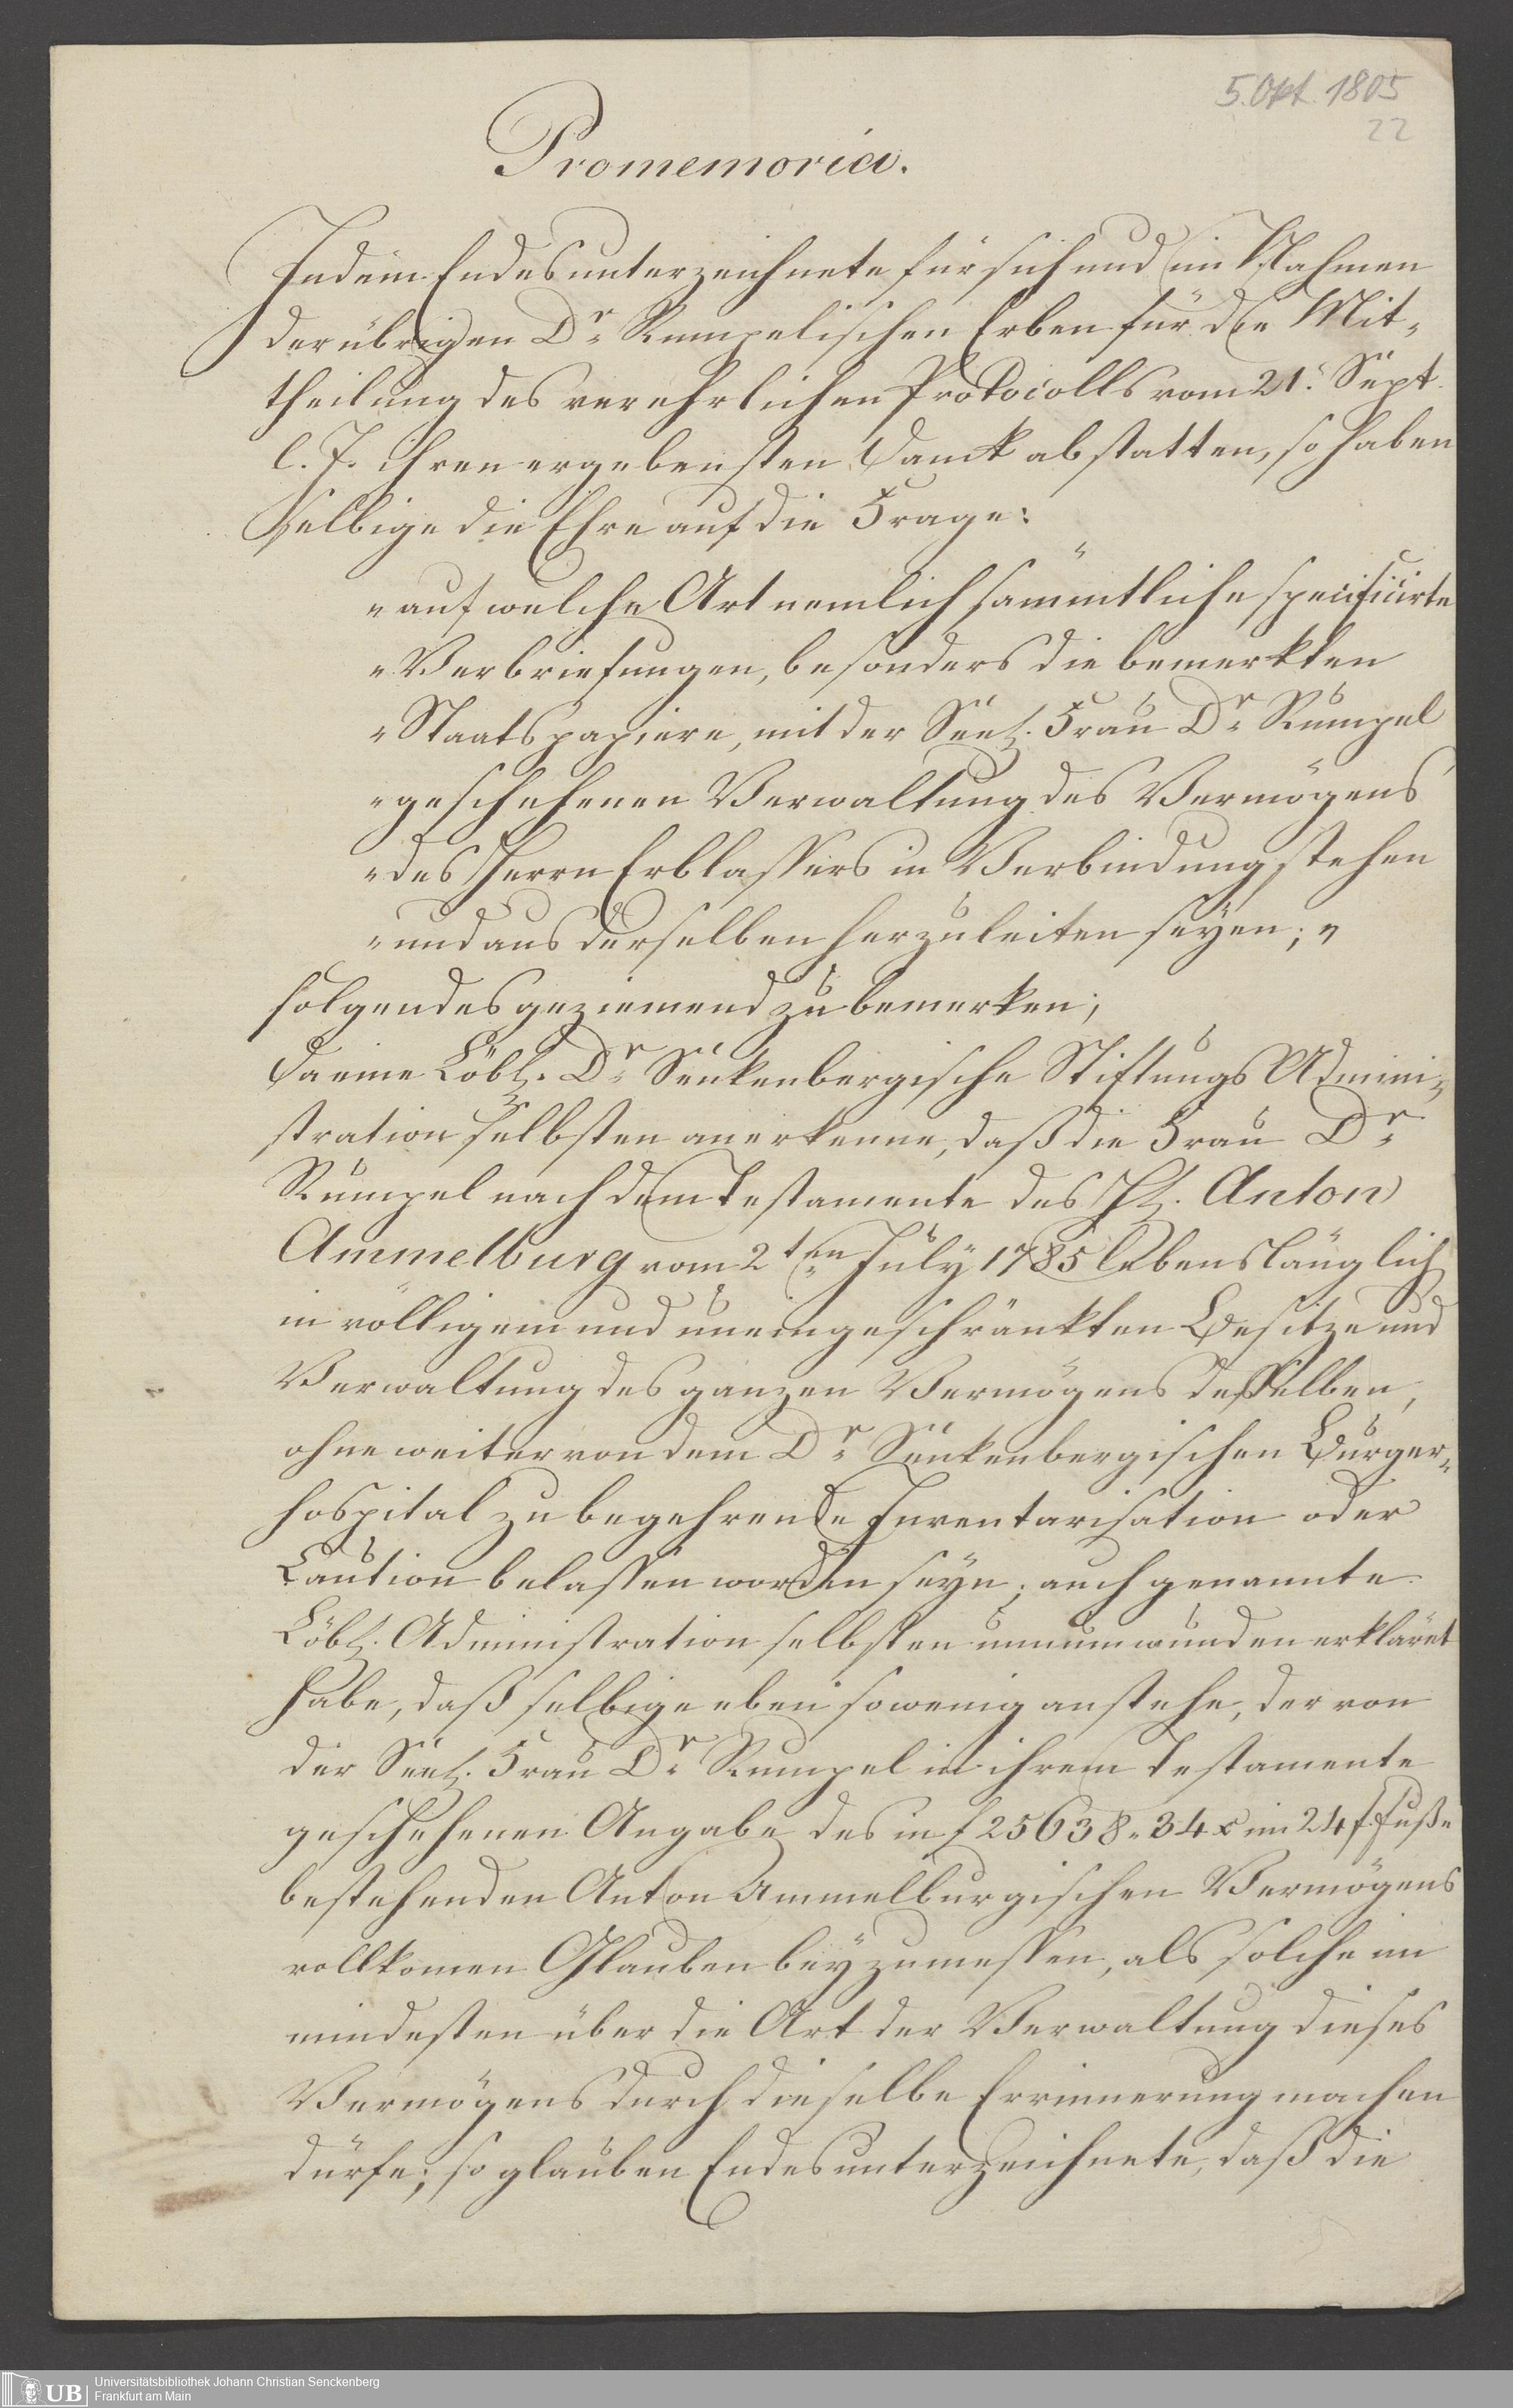 5. Okt. 1805
22
Promemoria.
Indem Endesunterzeichnete für sich und im Nahmen
der übrigen Dr Rumpelischen Erben für die Mit-
theilung des verehrlichen Protocolls vom 21. Sept.
l. J. ihren ergebensten Danck abstatten, so haben
selbige die Ehre auf die Frage:
"auf welche Art nemlich sämmtliche specificirte
"Verbriefungen, besonders die bemerkten
"Staatspapiere, mit der Seel. Frau Dr Rumpel
"geschehenen Verwaltung des Vermögens
"des Herrn Erblassers in Verbindung stehen
"und aus derselben herzuleiten seyen; "
folgendes geziemend zu bemerken;
Da eine Löbl. Dr Senkenbergische Stiftungs Admini-
stration selbsten anerkenne, daß die Frau Dr
Rumpel nach dem Testamente des H. Anton
Ammelburg vom 2ten July 1785 lebenslänglich
in völligem und uneingeschränkten Besitze und
Verwaltung des ganzen Vermögens desselben,
ohne weiter von dem Dr Senkenbergischen Bürger-
hospital zu begehrende Inventarisation oder
Caution belassen worden seyn; auch genannte
Löbl. Administration selbsten unumwunden erkläret
habe, daß selbige eben so wenig anstehe, der von
der Seel. Frau Dr Rumpel in ihrem Testamente
geschehenen Angabe des in f 25638 " 34 x im 24 f. Fuße
bestehenden Anton Ammelburgischen Vermögens
vollkomen Glauben beyzumessen, als solche im
mindesten über die Art der Verwaltung dieses
Vermögens durch dieselbe Errinnerung machen
dürfe; so glauben Endesunterzeichnete, daß die
UB
Universitätsbibliothek Johann Christian Senckenberg
Frankfurt am Main